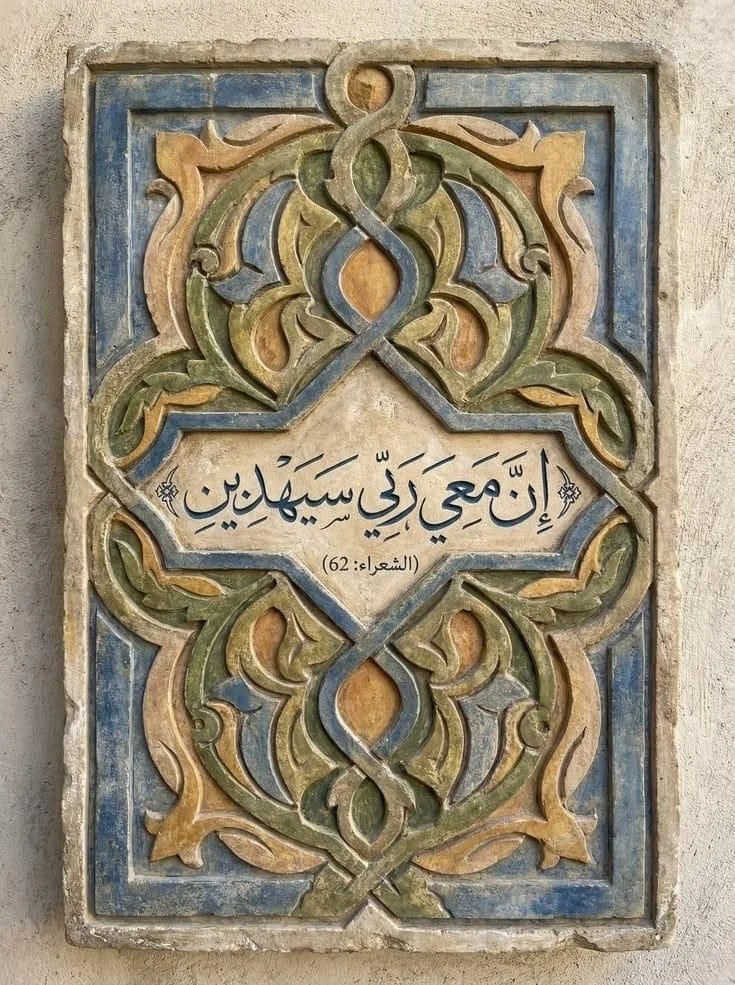 إِنَّ مَعِيَ رَبِّي سَيَهْدِينِ
(الشعراء: 62)